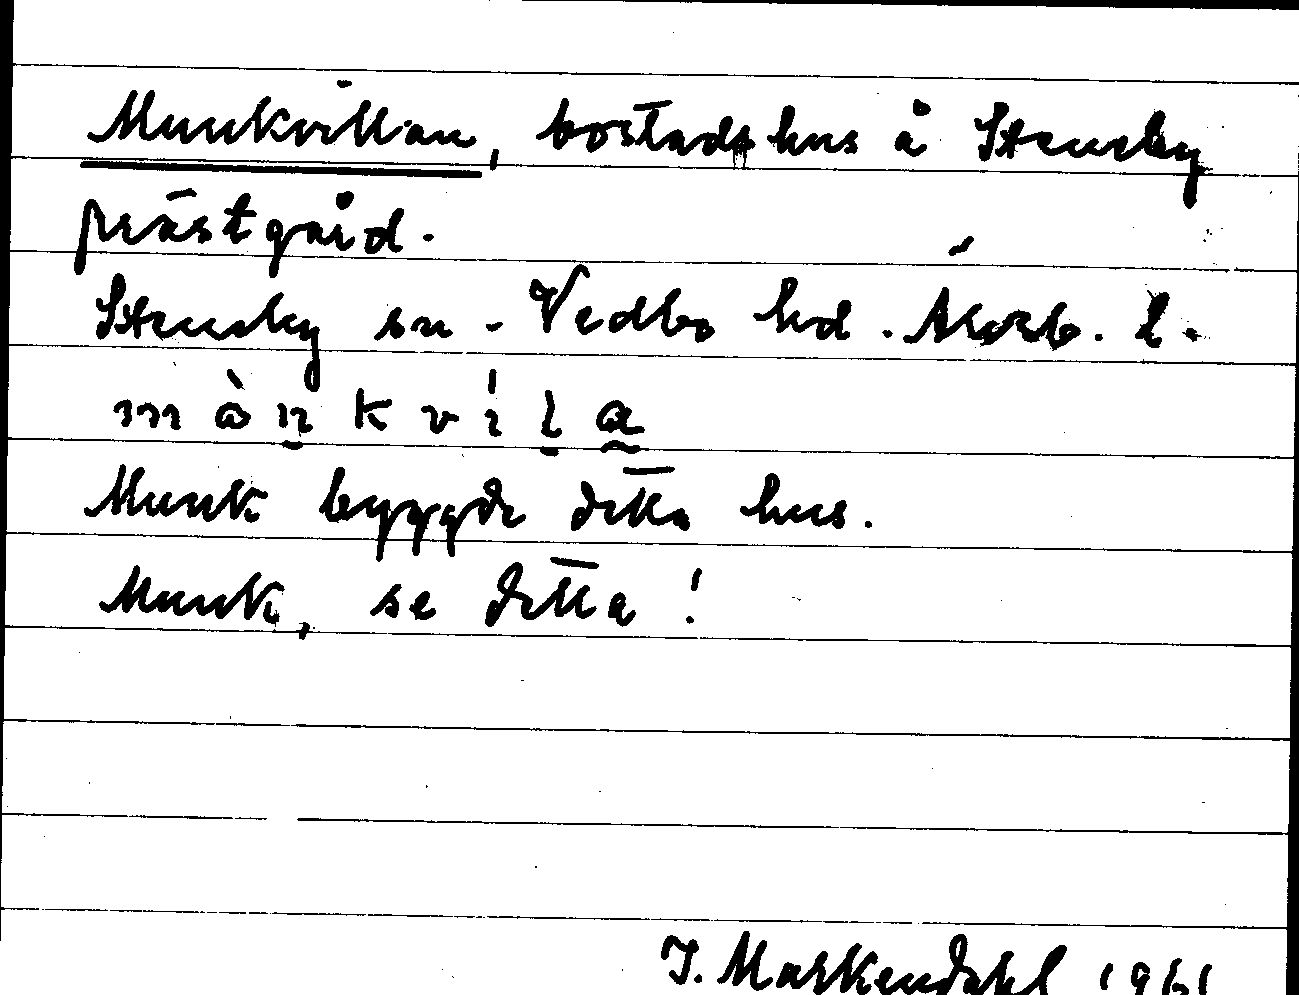 Munkvillan, bostadshus å Stenby
prästgård.
Stenby sn. Vedbo hd. Älvsb. l.
m å n k v i l a
Munk byggde detta hus.
Munk, se detta!
J. Markendahl 1961